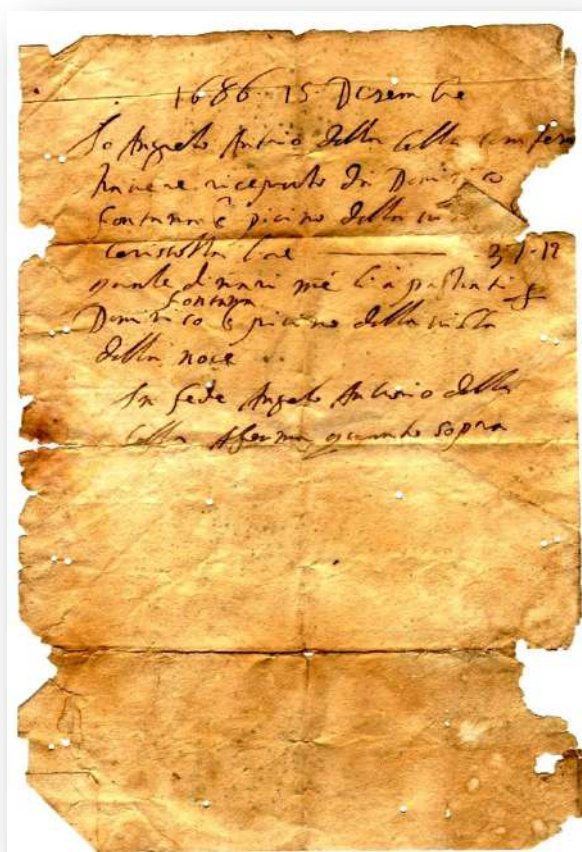 1686 15 Dicembre
Io Angelo Antonio della Cella confesso
havere riceputo da Dominico
Fontana e picino della
lire 31-12
quale dinari me li à portati
Fontana
Dominico e picino della
della noce
In fede Angelo Antonio della
Cella Afermo quanto sopra